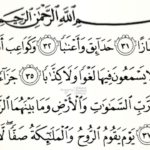 بِسْمِ اللَّهِ الرَّحْمَٰنِ الرَّحِيمِ
ازًا ٣١ حَدَائِقَ وَأَعْنَٰبًا ٣٢ وَكَوَاعِبَ أ
لَّا يَسْمَعُونَ فِيهَا لَغْوًا وَلَا كِذَّٰبًا ٣٥ جَزَاءً
رَّبِّ السَّمَٰوَٰتِ وَالْأَرْضِ وَمَا بَيْنَهُمَا الر
يَوْمَ يَقُومُ الرُّوحُ وَالْمَلَٰئِكَةُ صَفًّا لَّا